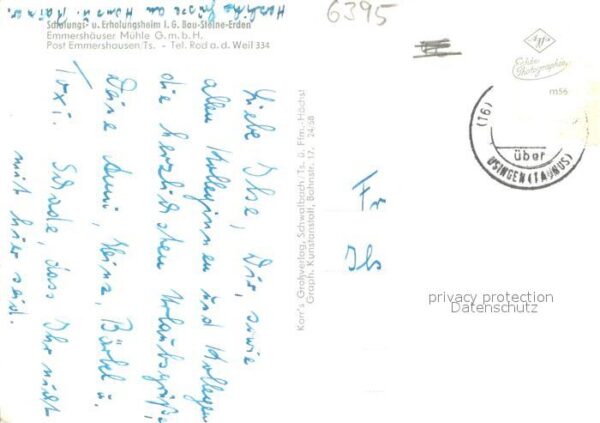 Herzliche Grüsse an Hans u. Rainer.
Schulungs- u. Erholungsheim I. G. Bau-Steine-Erden
Emmershäuser Mühle G.m.b.H.
Post Emmershausen/Ts. - Tel. Rod a. d. Weil 334
Liebe Ilse, Dir, sowie
allen Kolleginnen und Kollegen
die herzlichsten Urlaubsgrüße
Deine Anni, Heinz, Bärbel u.
Toxi. Schade, dass Ihr nicht
mit hier seid.
Karr's Großverlag, Schwalbach/Ts. ü. Ffm.-Höchst
Graph. Kunstanstalt, Bahnstr. 17. 24/58
6395
Echte Photographie
m56
(16)
über
USINGEN (TAUNUS)
Fr
Ils
privacy protection
Datenschutz